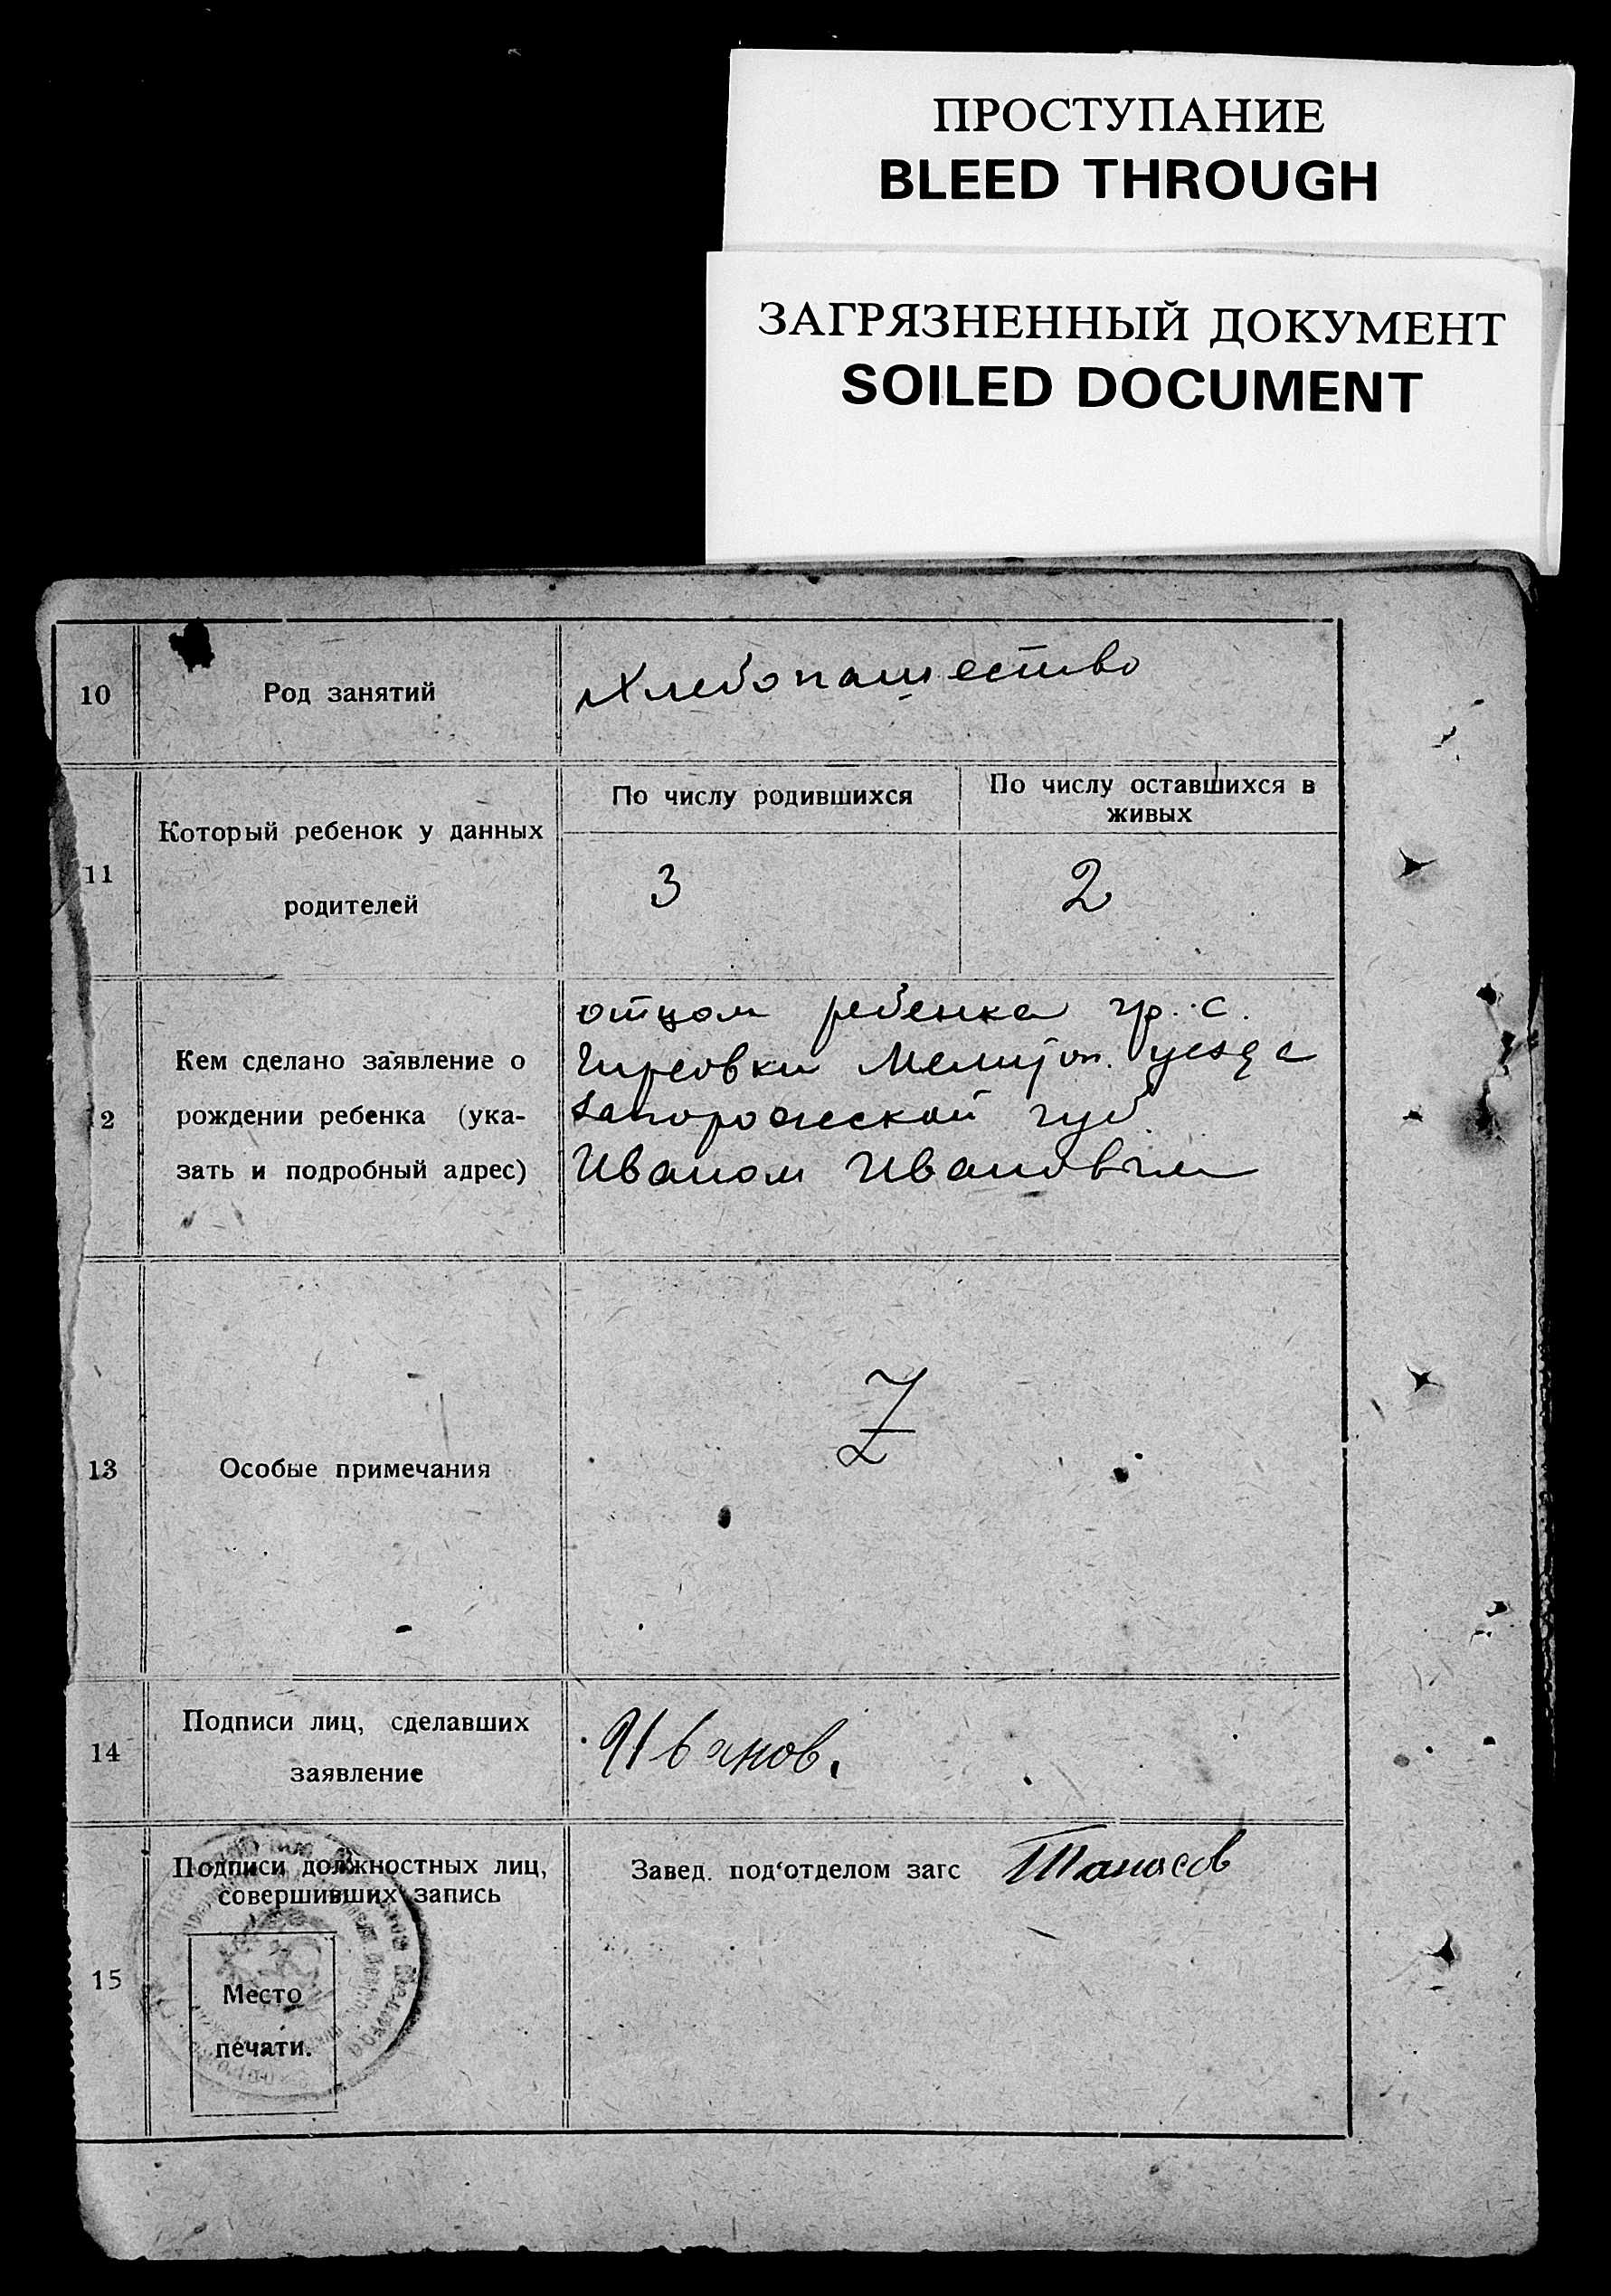 ПРОСТУПАНИЕ
BLEED THROUGH
ЗАГРЯЗНЕННЫЙ ДОКУМЕНТ
SOILED DOCUMENT
10
Род занятий
Хлебопашество
11
Который ребенок у данных
родителей
По числу родившихся
По числу оставшихся в
живых
3
2
2
Кем сделано заявление о
рождении ребенка (ука-
зать и подробный адрес)
отцом ребенка гр. с.
Гирсовки Мелитоп. уезда
Запорожской губ.
Иваном Ивановым
13
Особые примечания
Z
14
Подписи лиц, сделавших
заявление
Иванов.
15
Подписи должностных лиц,
совершивших запись
Место
печати.
Завед. под‘отделом загс
Танасов